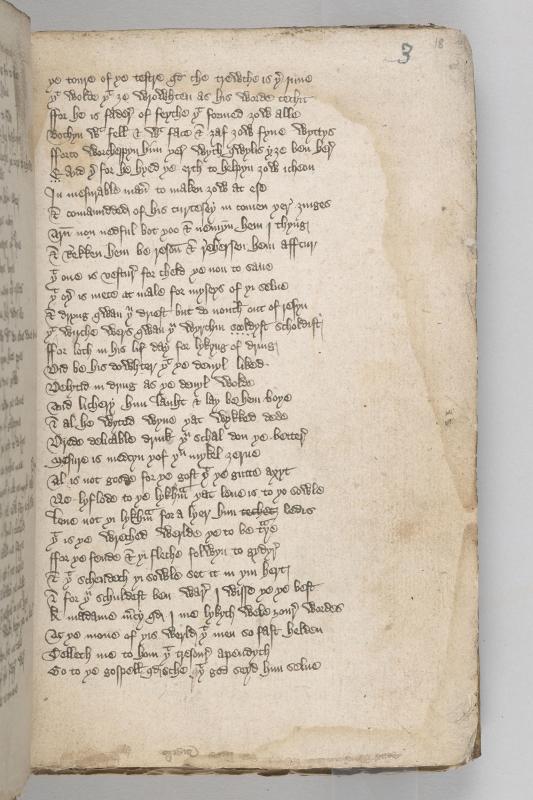 3 18
ye toure of ye tofte qd che trewthe is yr inne
yt wolde yt ze wrowhten as his worde techit
ffor he is fader of feythe yt formed zow alle
Bothyn wt fell & wt face & zaf zow fyue wyttys
fforto worchepyn him yer wyth qwylis yt ze ben her
And yt for he hyed ye erth to helpyn zow ichon
In mesurable maner to maken zow at ese
& comaundded of his curtesey in comen yer yinges
Arn non nedful bot yoo & nemyn hem I thynk
& Rekken hem be reson & rehersen hem aftter
yt one is vestur for cheld ye non to saue
yt oyr is mete at male for myseys of yi selue
& dryng qwan yu driest but do nouth out of resyn
yt wirche wers qwan yu wyrchin scholdist
ffor loth in his lif day for lykyng of drink
Did be his dowhter yt ye deuyl liked
Delytid in dryng as ye deuyl wolde
And lichery him lauht & lay be hem boye
& al he wyted wyne yat wykked dede
Drede delitable drink yu schal don ye better
Mesure is medcyn yof yu mykel zerne
Al is not gode for ye gost yt ye gutte axyt
Ne lyflode to ye lykham yat leue is to yo sowle
Leue not yi lykham for a lyer him techet ledis
yt is ye wreched werlde ye to be traye
ffor ye fende & yi fleche folwyn to gydyr
& yt schendeth yi sowle set it in yin hert
& for yu schuldist ben war I wisse ye ye best
A madame mcy qd I me lykyth wele zour wordes
At ye mone of yis werld yt men so fast helden
Tellech me to hom yt tresour apendyth
Go to ye gospell qd sche yt god seyd him selue